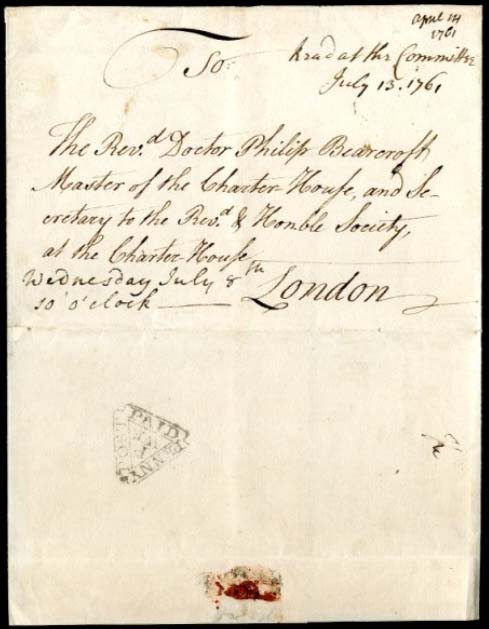 April 14
1761
To:
Read at the Committee
July 13. 1761
The Rev.d Doctor Philip Bearcroft
Master of the Charter-House, and Se-
cretary to the Rev.d & Honble Society,
at the Charter-House
Wednesday July 8th London
10 o'clock
PAID
PENNY
POST